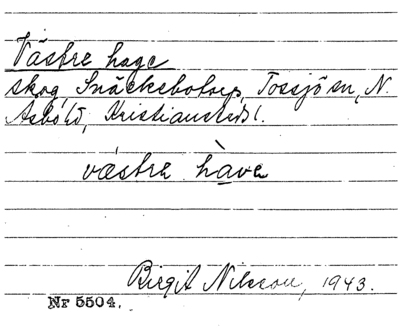 Västre hage
skog, Snäckebotorp, Tossjö sn, N.
Asbo hd, Kristianstads l.
västre hàve
Birgit Nilsson, 1943.
Nr 5504.